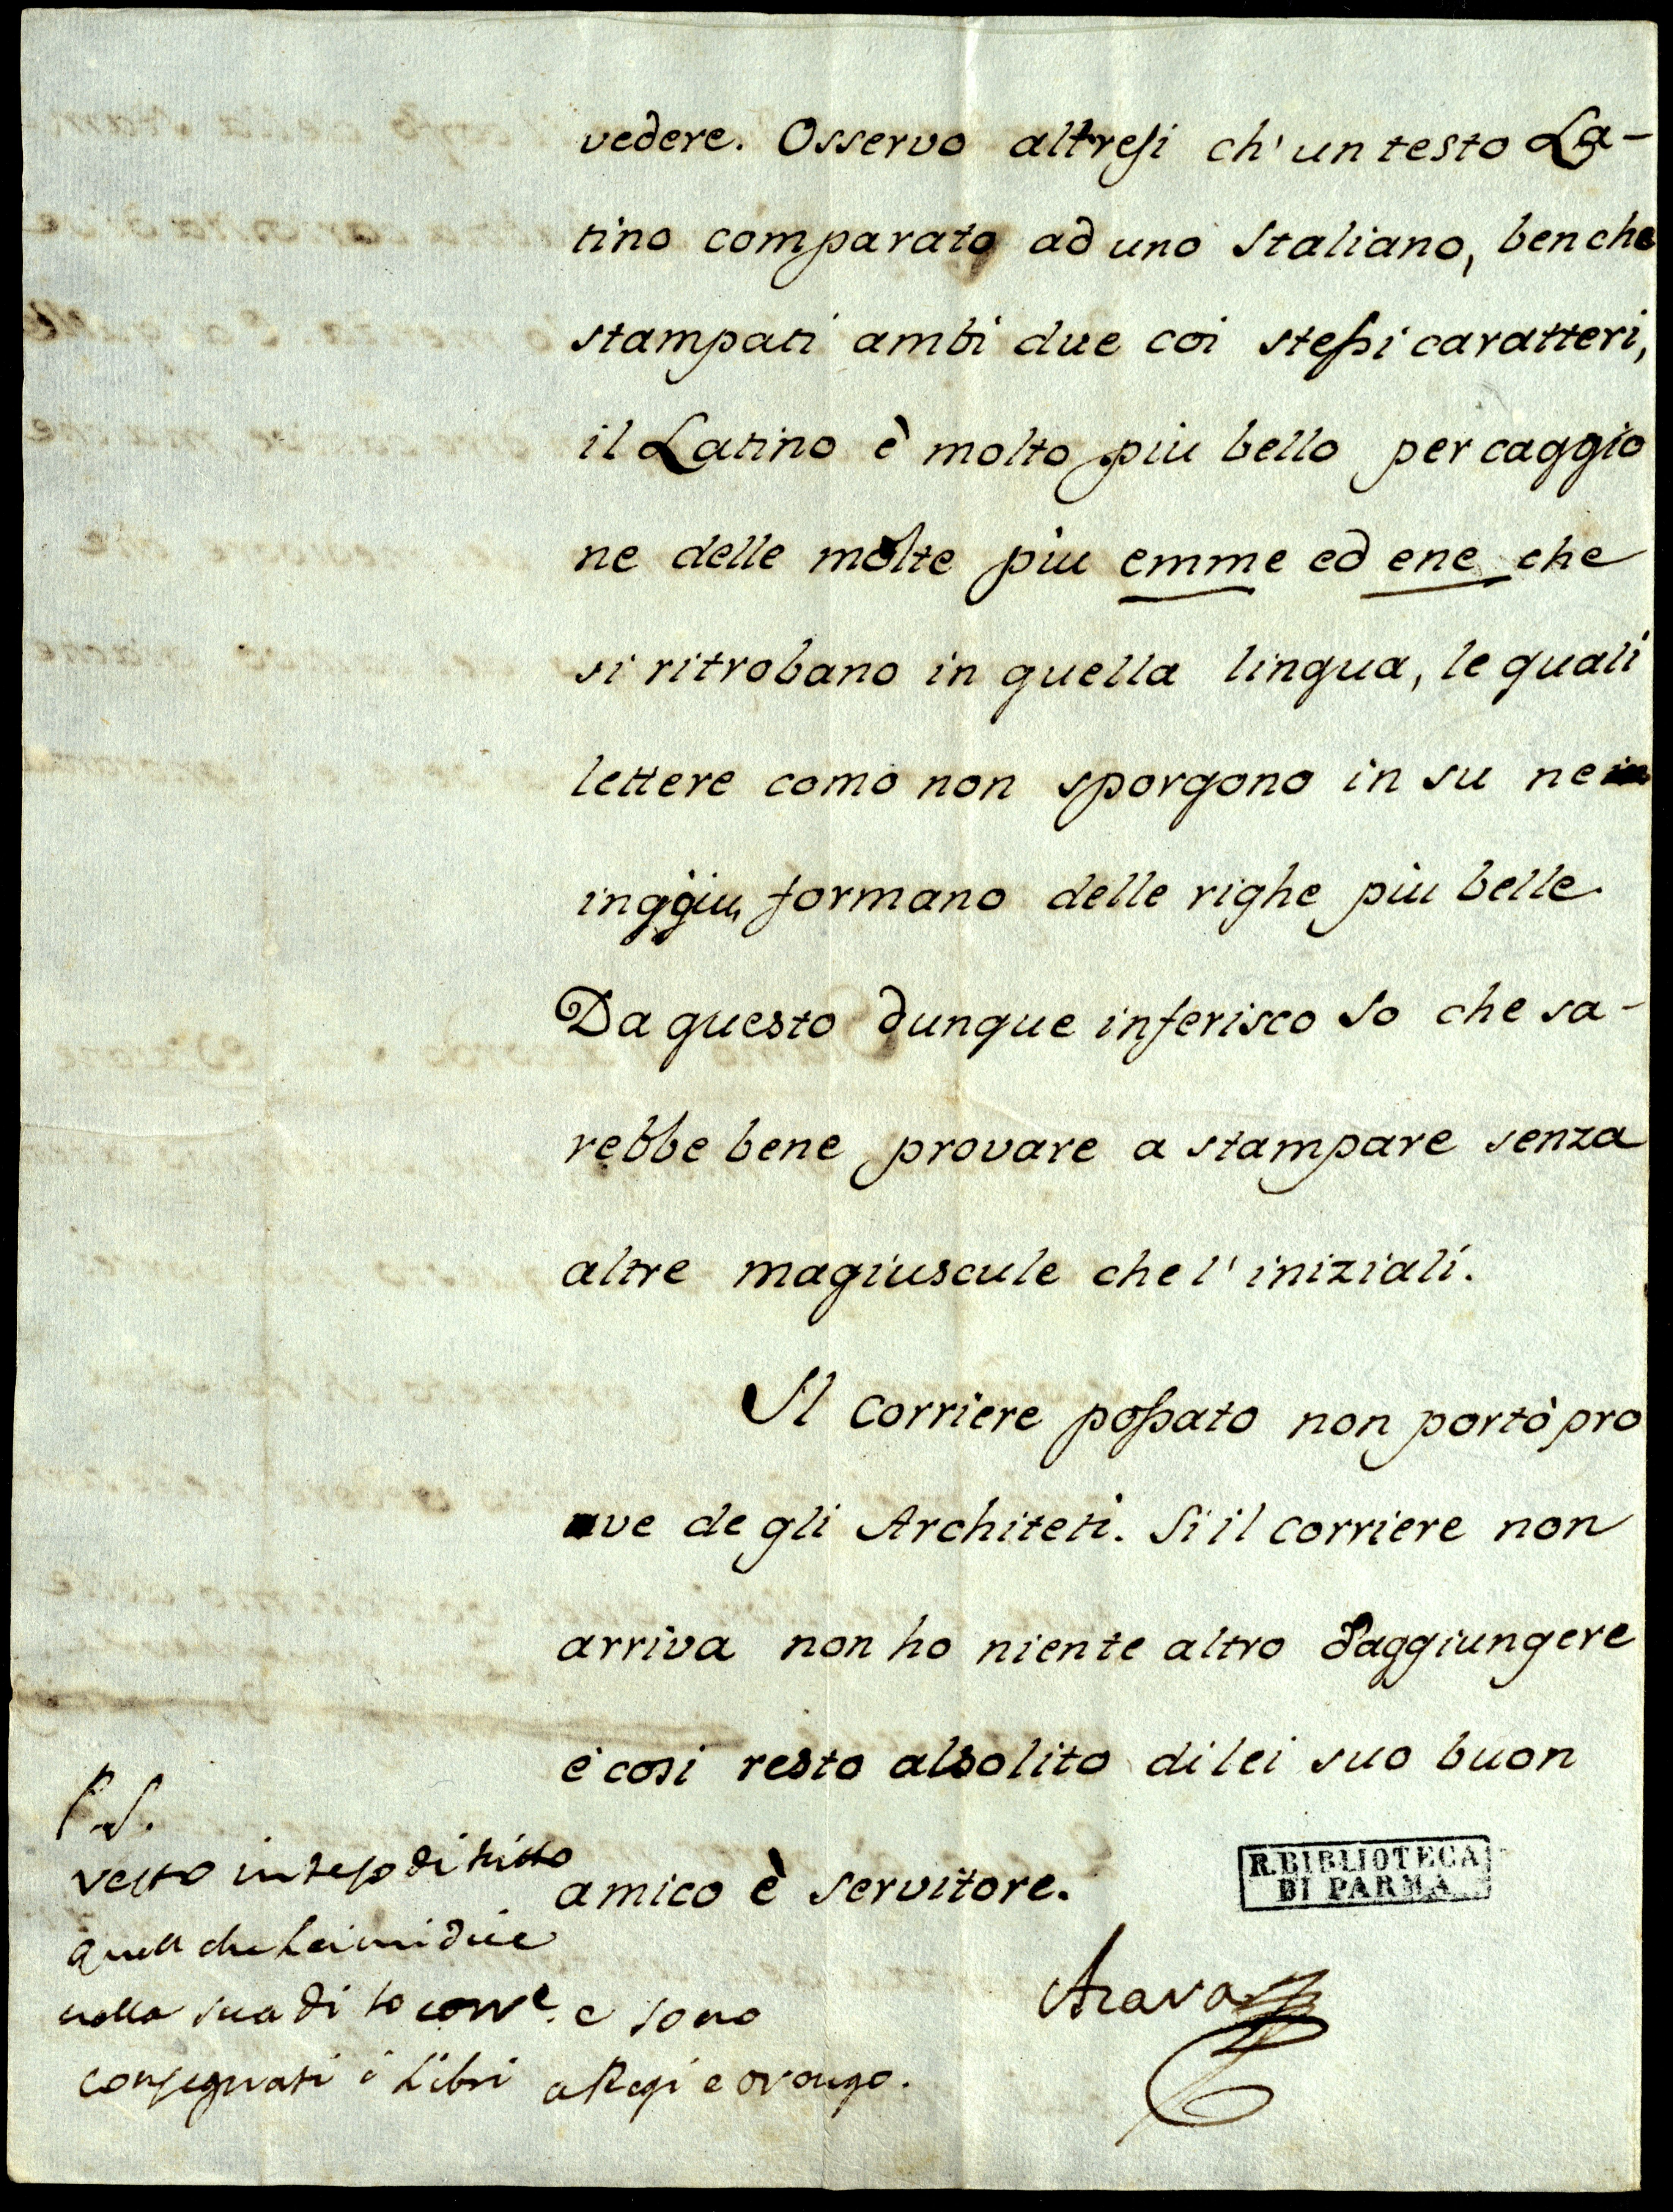 vedere. Osservo altresi ch' un testo La-
tino comparato ad uno Italiano, benche
stampati ambi due coi stessi caratteri,
il Latino è molto piu bello per caggio
ne delle molte piu emme ed ene che
si ritrobano in quella lingua, le quali
lettere como non sporgono in su ne
inggiu, formano delle righe piu belle.
Da questo dunque inferisco Io che sa-
rebbe bene provare a stampare senza
altre magiuscule che l' iniziali.
Il corriere possato non portò pro
ve degli Architeti. Si il corriere non
arriva non ho niente altro d'aggiungere
e cosi resto al solito di lei suo buon
amico è servitore.
Azara
P.S.
resto inteso di tutto
quello che Lei mi dice
nella sua di 10 corre. e sono
consegnati i Libri a Regi e
R. BIBLIOTECA
DI PARMA